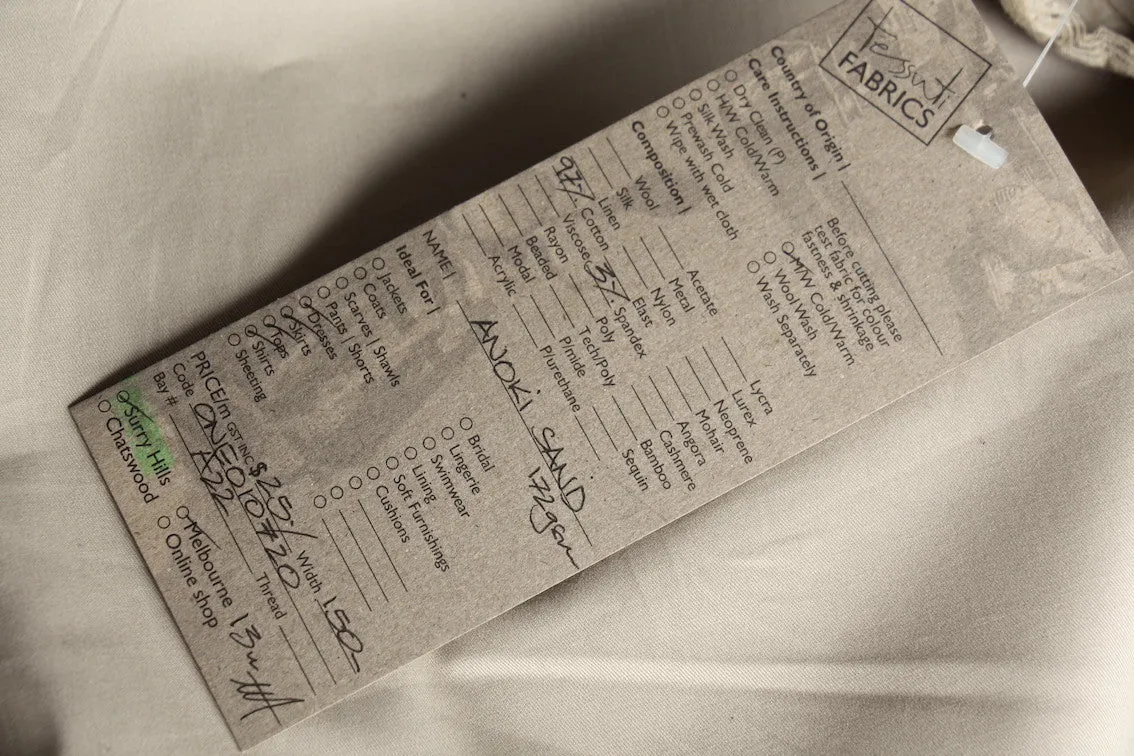 Tessuti
FABRICS
Country of Origin |
Care Instructions |
Dry Clean (P)
H/W Cold/Warm
Silk Wash
Prewash Cold
Wipe with wet cloth
Before cutting please
test fabric for colour
fastness & shrinkage
M/W Cold/Warm
Wool Wash
Wash Separately
Composition |
Wool
Silk
Linen
97% Cotton
Viscose
Rayon
Beaded
Modal
Acrylic
Acetate
Metal
Nylon
Elast
3% Spandex
Poly
Tech/Poly
P/mide
P/urethane
Lycra
Lurex
Neoprene
Mohair
Angora
Cashmere
Bamboo
Sequin
NAME | ANOKI SAND
172gsm
Ideal For |
Jackets
Coats
Scarves | Shawls
Pants | Shorts
Dresses
Skirts
Tops
Shirts
Sheeting
Bridal
Lingerie
Swimwear
Lining
Soft Furnishings
Cushions
PRICE/m GST INC $25/- Width 150-
Code ONE010#20
Bay # A22 Thread
Surry Hills
Chatswood
Melbourne 13m
Online shop